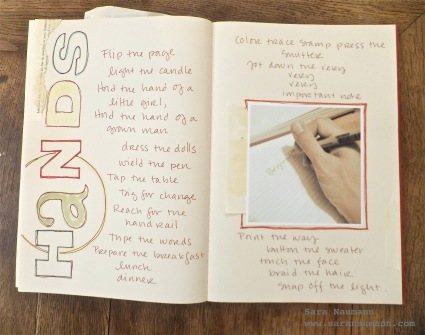 HaNDS
Flip the page
light the candle
Hold the hand of a
little girl,
Hold the hand of a
grown man
dress the dolls
wield the pen
Tap the table
Tag for change
Reach for the
hand rail
Type the words
Prepare the breakfast
lunch
dinner
Color trace stamp press the
snuffer
Jot down the very
very
very
important note
Print the way
button the sweater
touch the face
braid the hair
snap off the light...
Sara Naumann
www.saranaumann.com